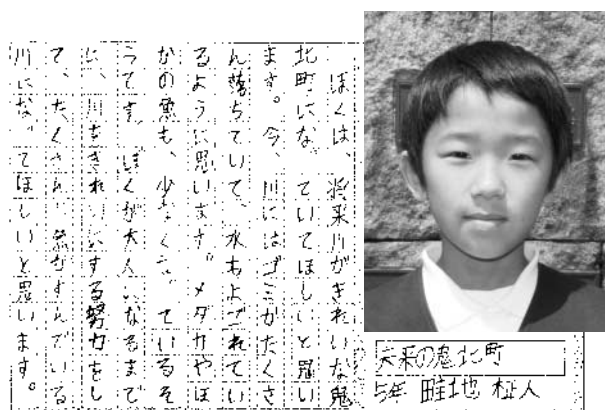 ぼくは、将来川がきれいな鬼
北町になっていてほしいと思い
ます。今、川にはゴミがたくさ
ん落ちていて、水もよごれてい
るように思います。メダカやほ
かの魚も、少なくなっているそ
うです。ぼくが大人になるまで
に、川をきれいにする努力をし
て、たくさんの魚がすんでいる
川になってほしいと思います。
未来の鬼北町
5年 畦地 柾人